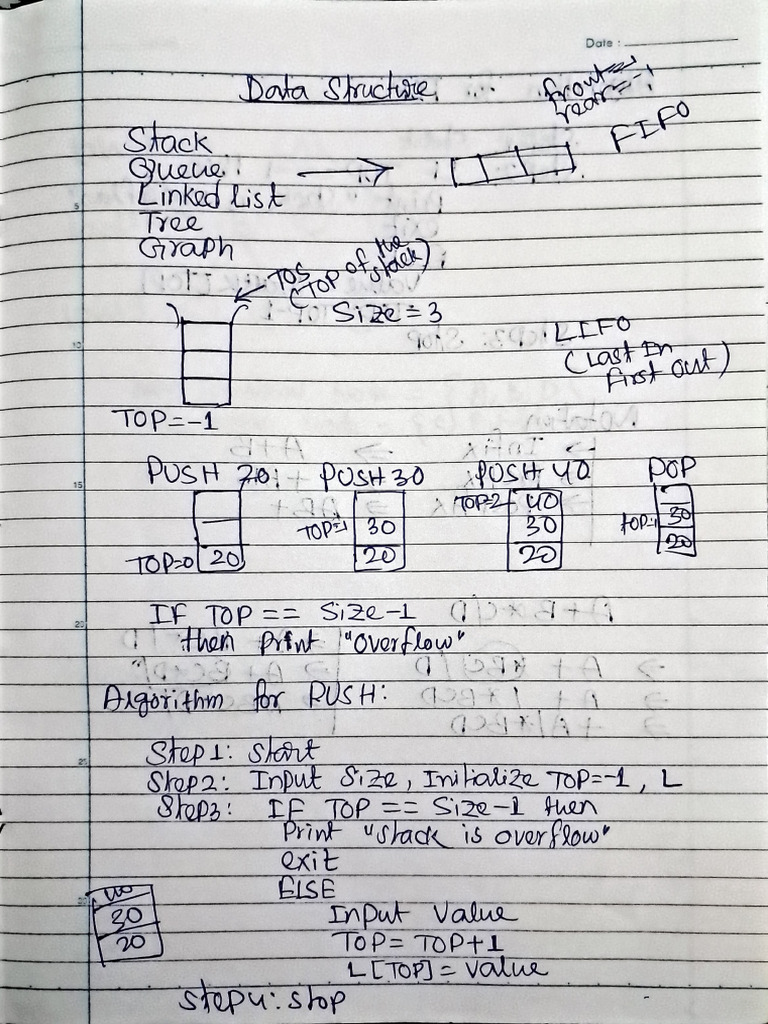 Date :
Data Structure
front=-1
rear=-1
FIFO
Stack
Queue
Linked list
Tree
Graph
TOS
(TOP of the
stack)
Size=3
LIFO
(Last In
First Out)
TOP=-1
PUSH 20
PUSH 30
PUSH 40
POP
TOP=0
20
TOP=1
30
20
TOP=2
40
30
20
TOP=1
30
20
IF TOP == Size-1
then Print "Overflow"
Algorithm for PUSH:
Step1: Start
Step2: Input Size, Initialize TOP=-1, L
Step3: IF TOP == Size-1 then
Print "Stack is overflow"
exit
ELSE
Input Value
TOP= TOP+1
L[TOP]= Value
40
30
20
Step4: Stop
5
10
15
20
25
30